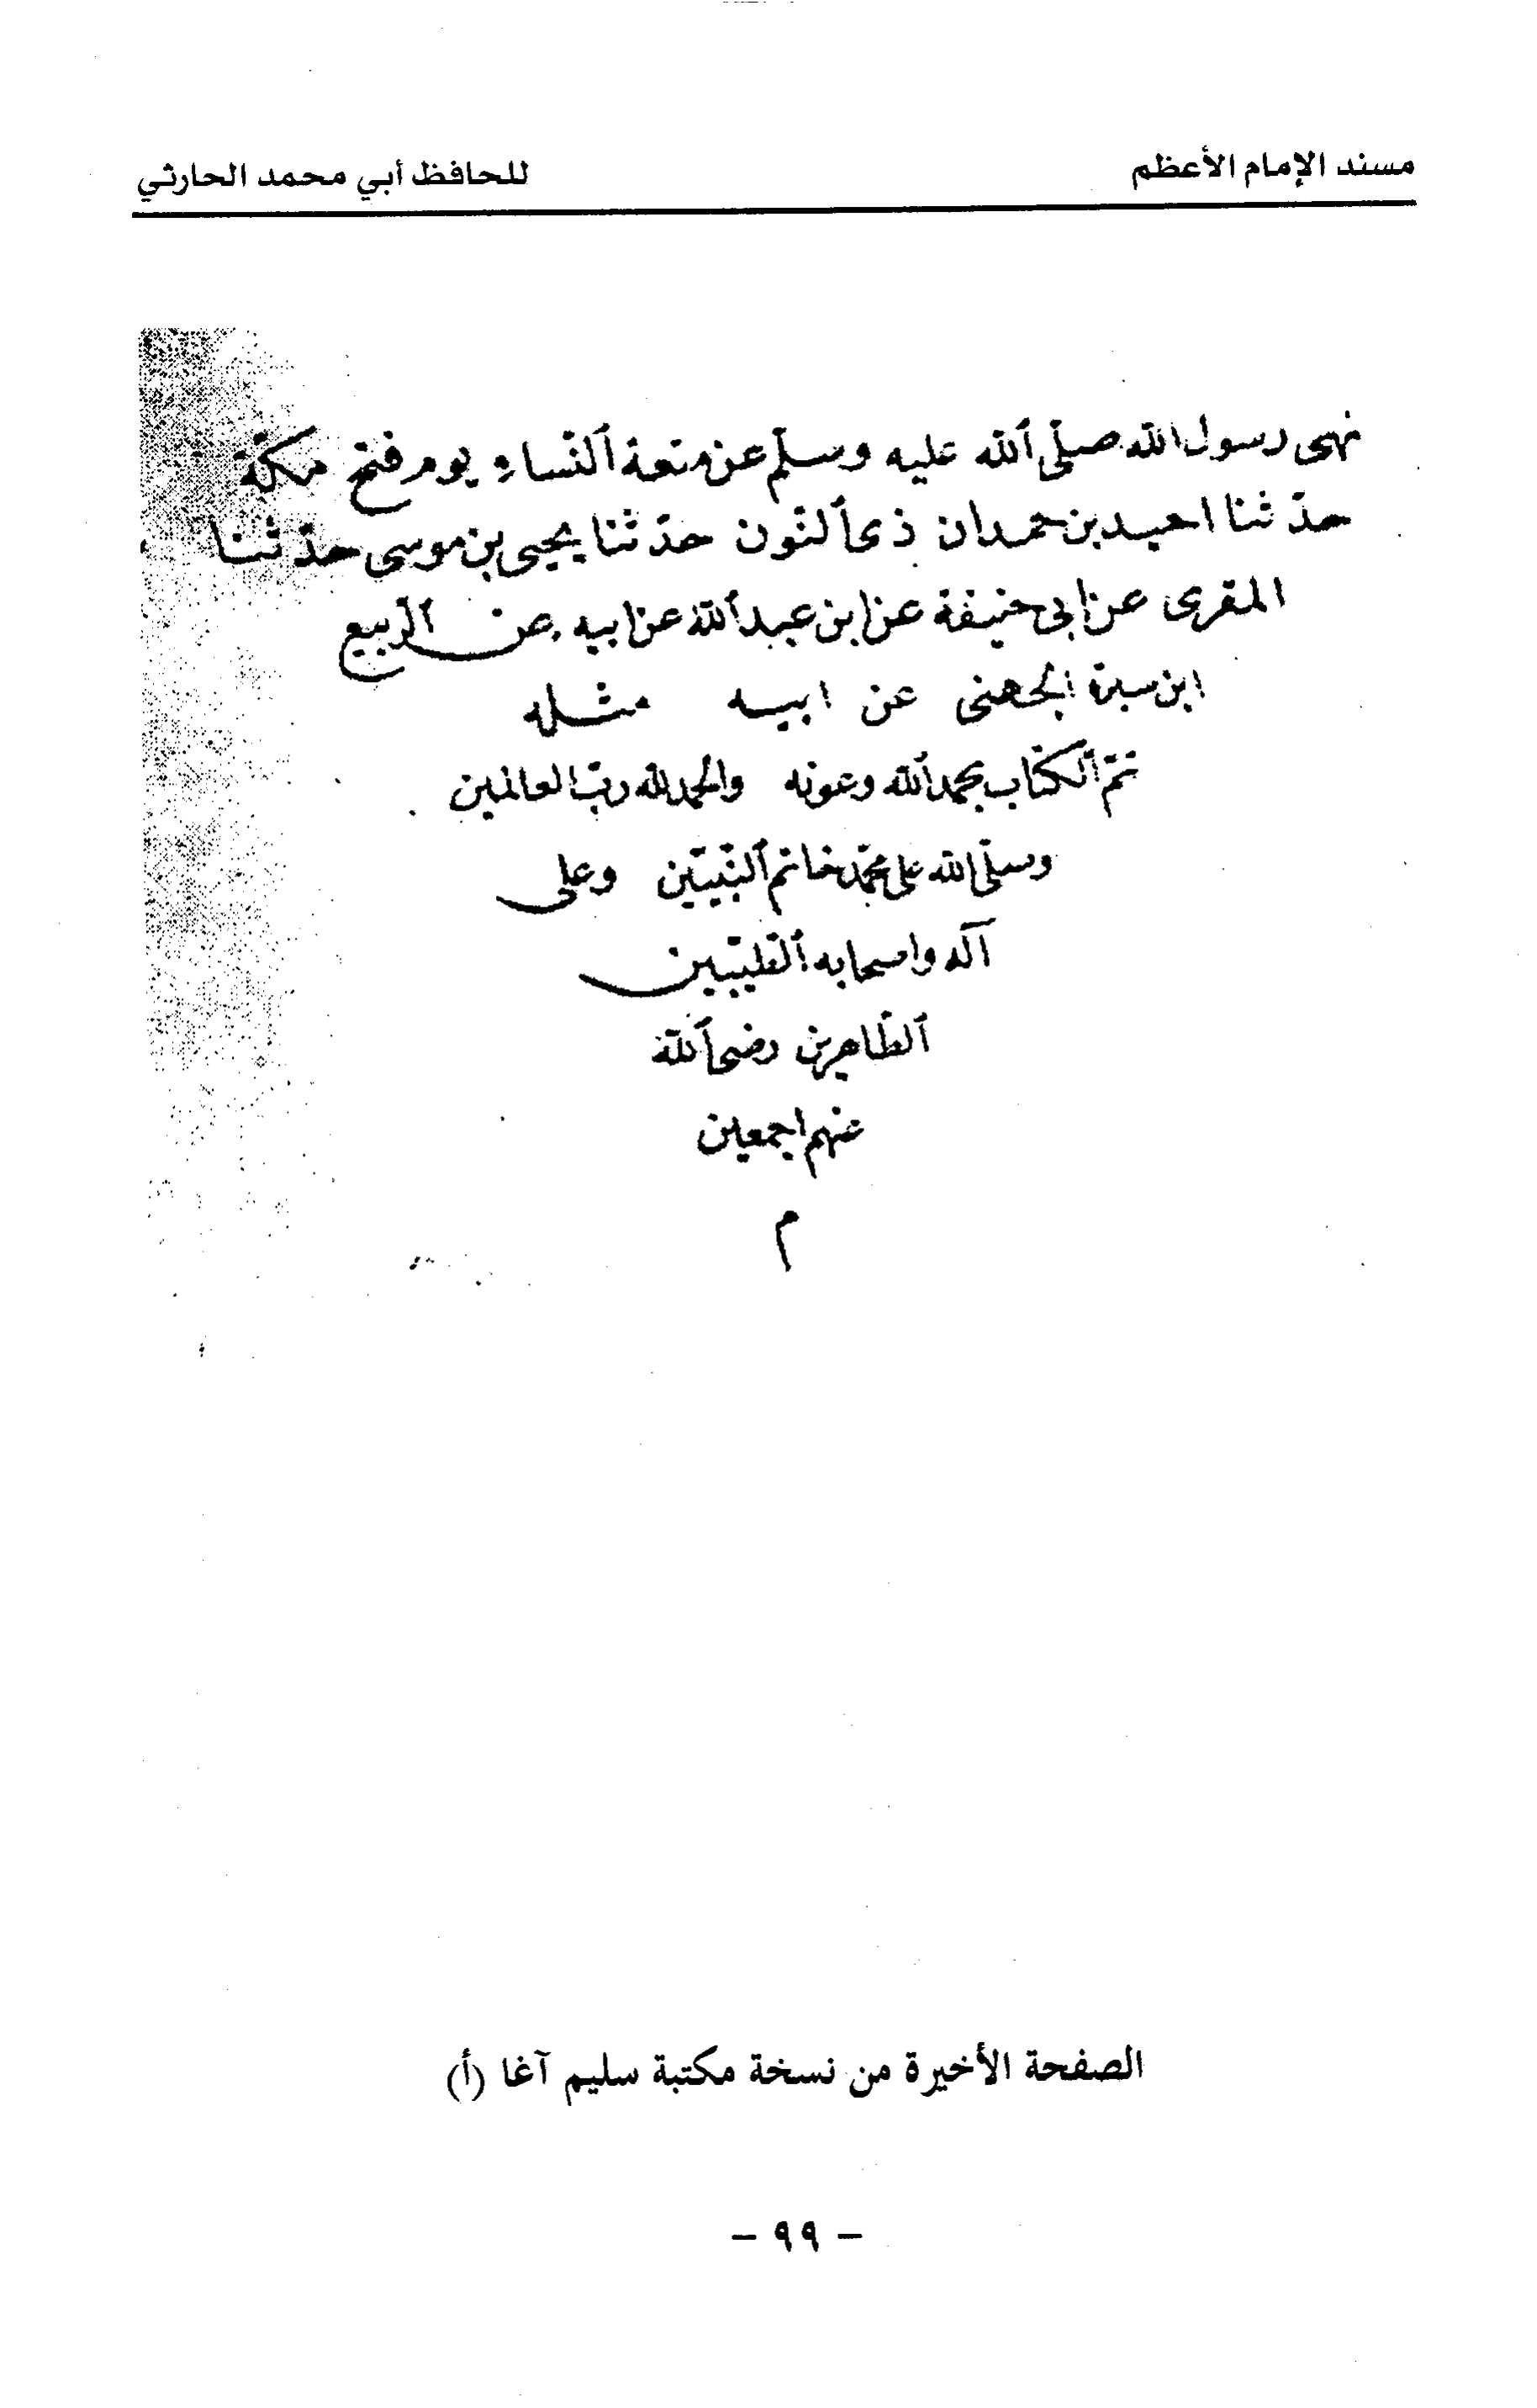 مسند الإمام الأعظم للحافظ أبي محمد الحارثي
نهى رسول الله صلّى ٱلله عليه وسلّم عن متعة ٱلنّساء يوم فتح مكّة
حدّثنا احيد بن حمدان ذى ٱلنّون حدّثنا يحيى بن موسى حدّثنا
المقرى عن ابى حنيفة عن ابن عبد ٱلله عن ابيه عن ٱلرّبيع
ابن سبرة الجهنى عن ابيه مثله
تمّ ٱلكتاب بحمد ٱلله وعونه والحمد لله ربّ العالمين
وصلّى الله على محمّد خاتم ٱلنّبيّين وعلى
آله واصحابه ٱلطّيّبين
ٱلطّاهرين رضى ٱلله
عنهم اجمعين
م
الصفحة الأخيرة من نسخة مكتبة سليم آغا (أ)
- ٩٩ -